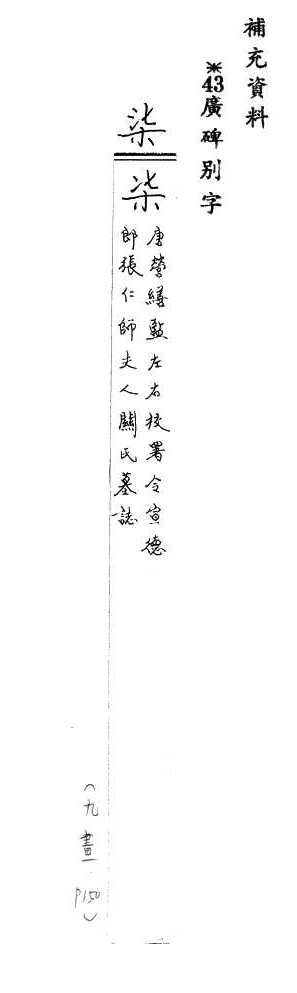 補充資料
※43廣碑別字
柒
柒
唐營繕監左右校署令宣德
郎張仁師夫人關氏墓誌
(九畫 p150)